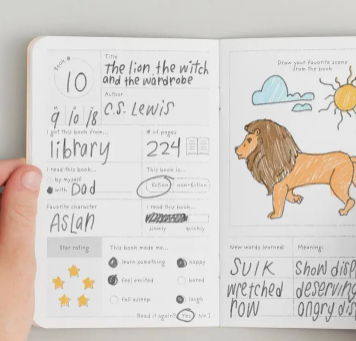 Book #
10
Title
the lion the witch
and the wardrobe
Author
C.S. Lewis
9 10 18
I got this book from...
library
# of pages
224
I read this book...
by myself
with Dad
This book is...
fiction non-fiction
Favorite character
Aslan
I read this book...
slowly quickly
Star rating
This book made me...
learn something happy
feel excited bored
fall asleep laugh
Read it again? Yes No
Draw your favorite scene
from the book
New words learned: Meaning:
Sulk Show disp
wretched deserving
row angry dis